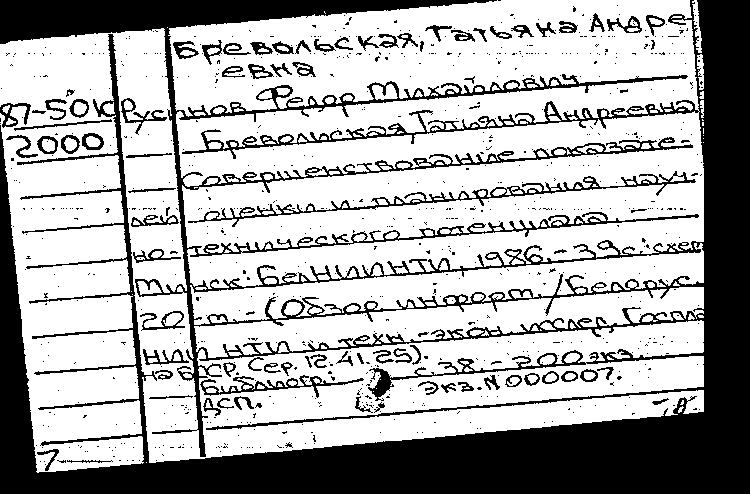 Бревольская, Татьяна Андре-
евна.
87-50К Русинов, Федор Михайлович,
2000 Бревольская, Татьяна Андреевна
Совершенствование показате-
лей оценки и планирования науч-
но-технического потенциала. -
Минск: БелНИИНТИ, 1986. - 39 с.: схем
20 см. - (Обзор. информ. / Белорус.
НИИ НТИ и техн.-экон. исслед. Госпла
на БССР. Сер. 12.41.25).
Библиогр.: с. 38. - 200 экз.
ДСП. Экз. N 000007.